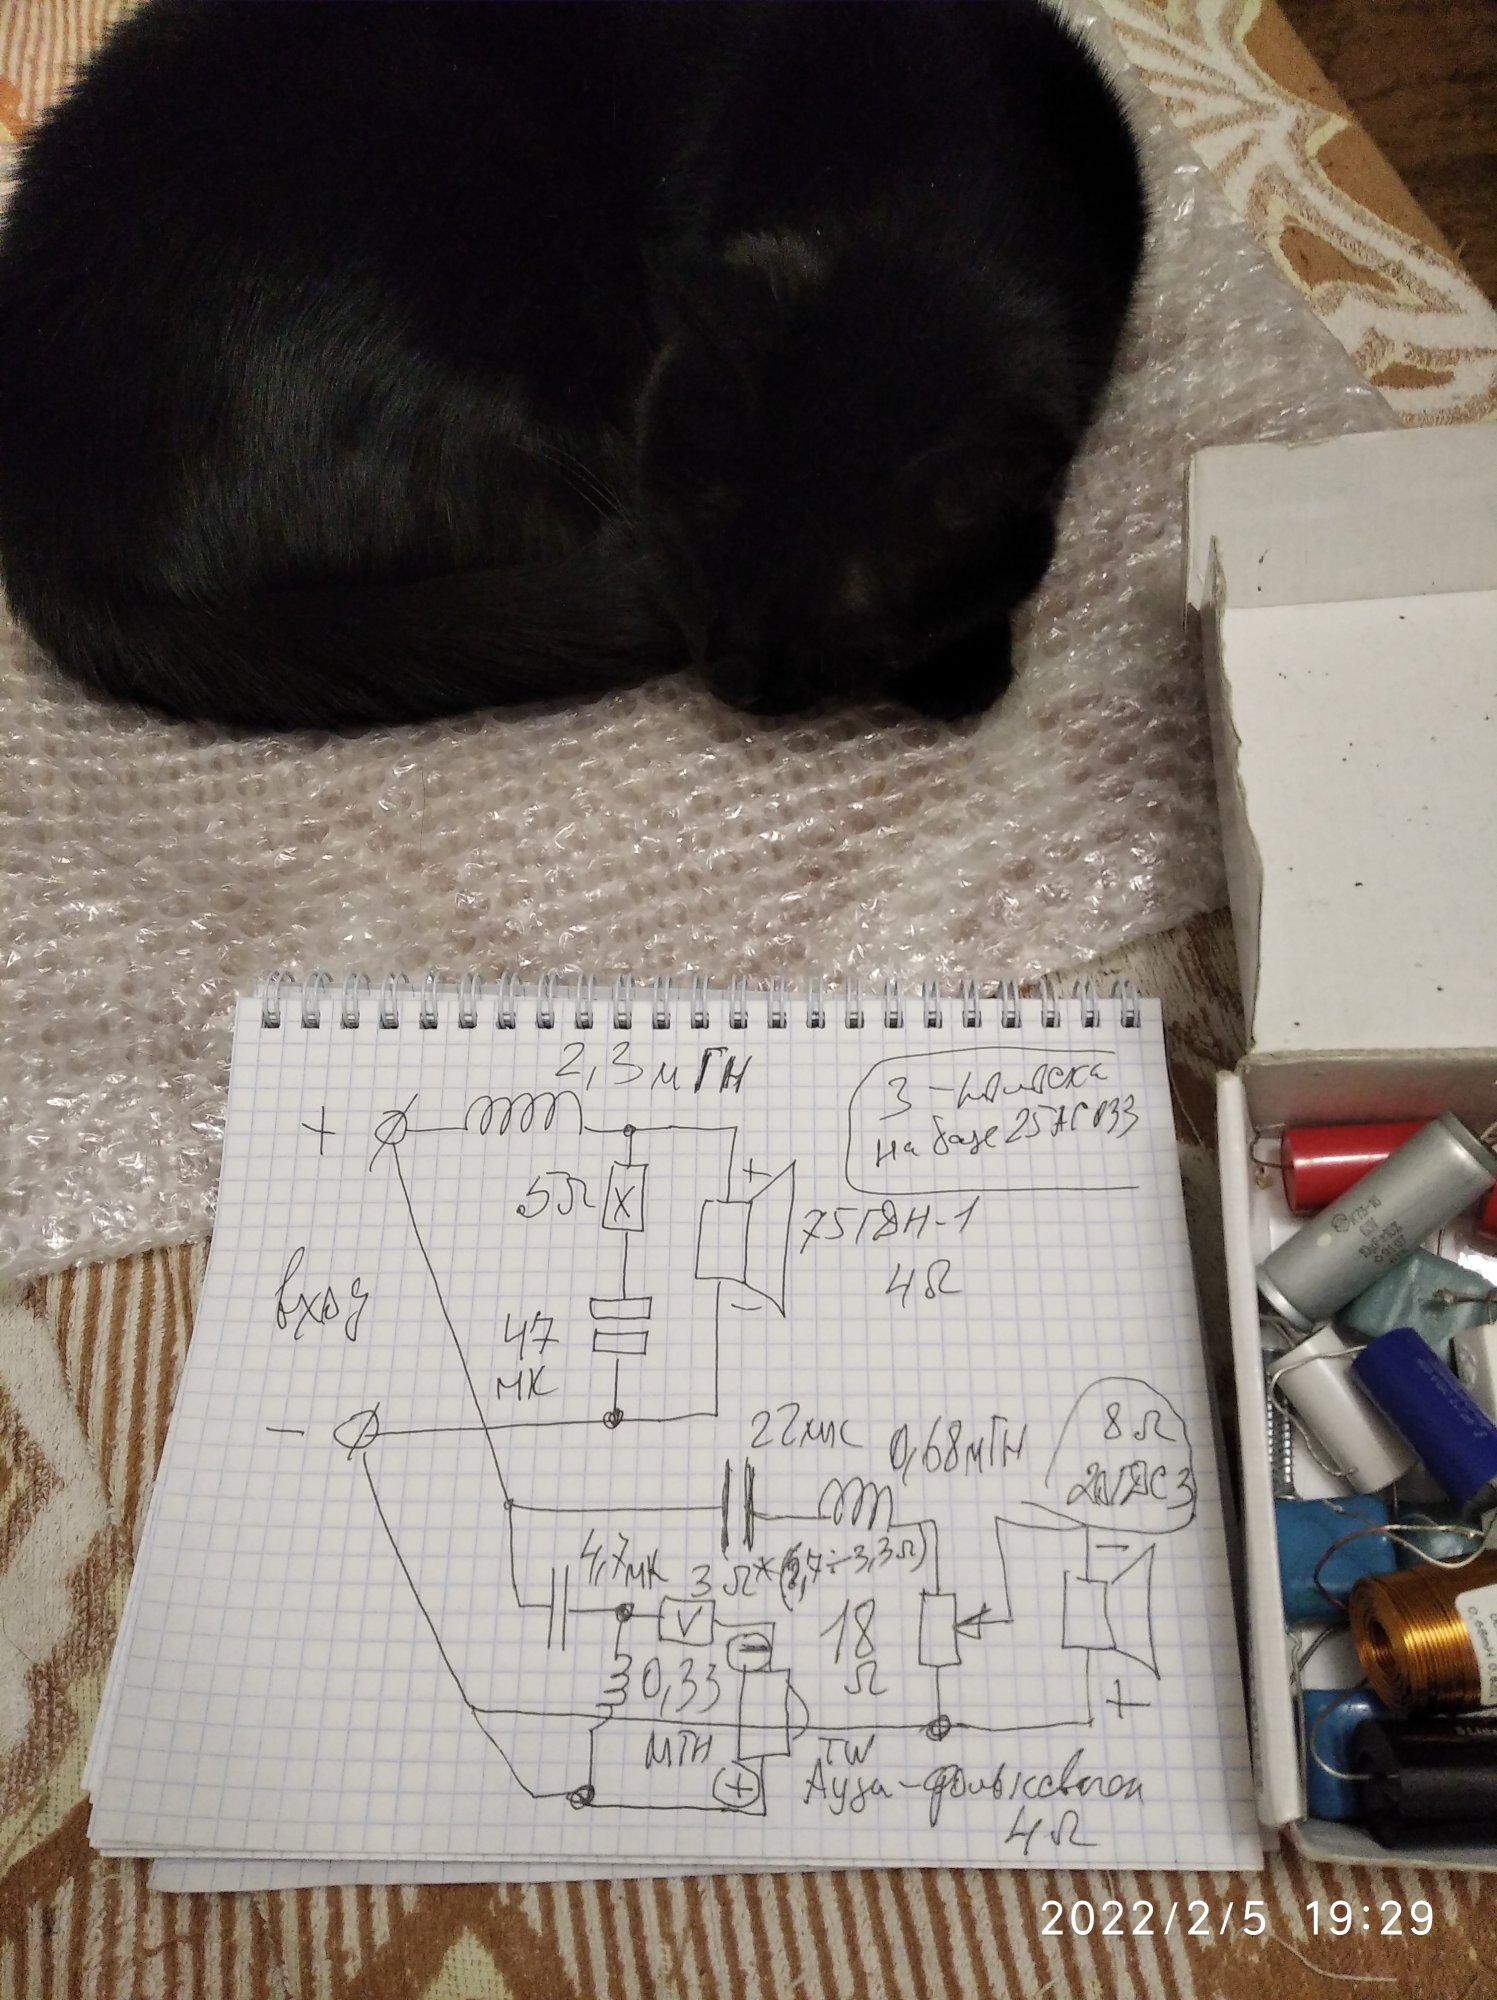 2,3 мГн
3-полоска
на базе 25АС033
+
5Ω
X
+
75ГДН-1
4Ω
вход
47
мк
-
-
22мк
0,68мГН
8Ω
20ГДС3
4,7мк
3
Ω*(2,7÷3,3Ω)
V
-
-
18
Ω
0,33
мГН
+
+
TW
Ауди-фольксваген
4Ω
2022/2/5 19:29